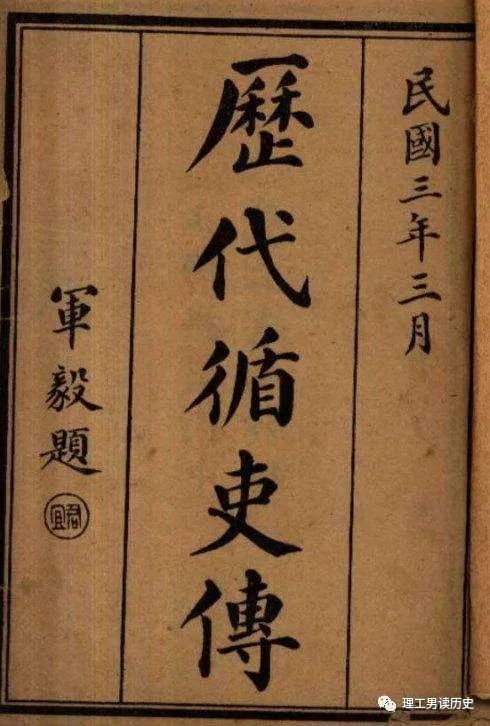 民國三年三月
歷代循吏傳
軍毅題
君宜
理工男读历史